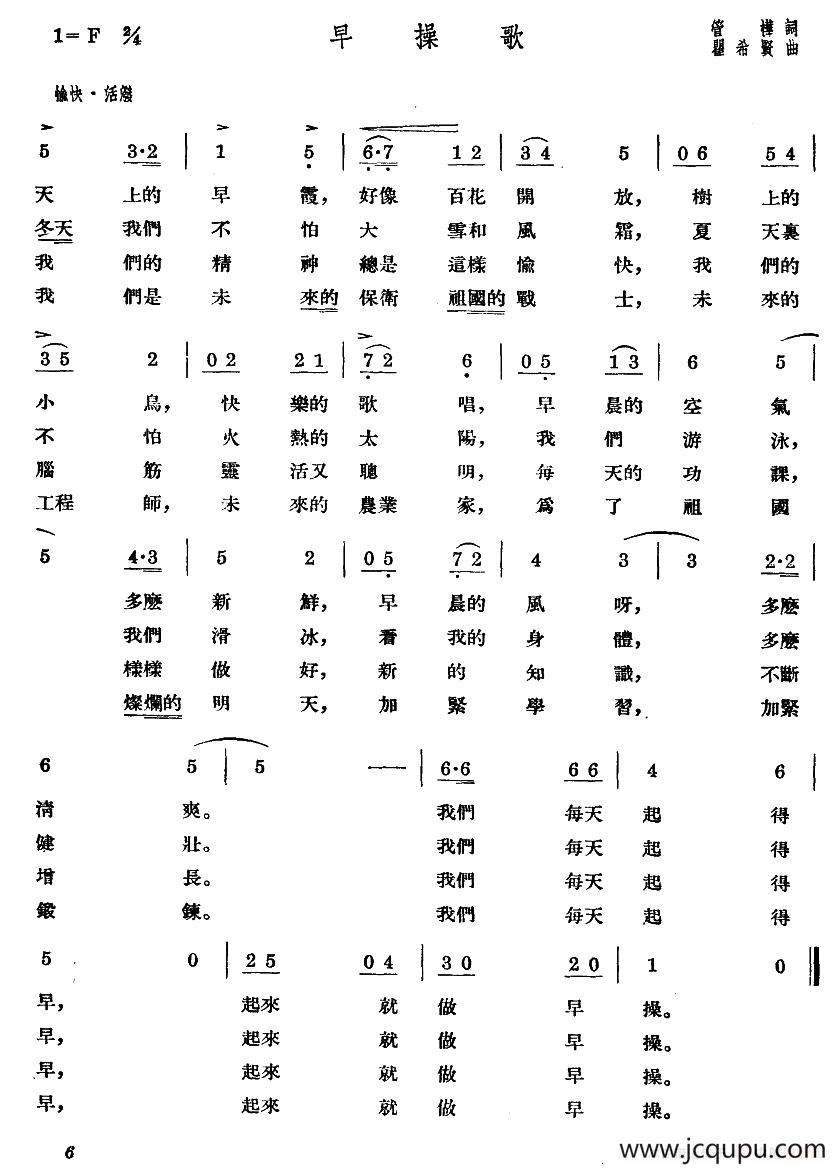 1= F 2/4 早 操 歌 管 樺 詞
瞿 希 賢 曲
愉快·活潑
5 3·2 | 1 5 | 6·7 12 | 34 5 | 06 54 |
天 上的 早 霞, 好像 百花 開 放, 樹 上的
冬天 我們 不 怕 大 雪和 風 霜, 夏 天裏
我 們的 精 神 總是 這樣 愉 快, 我 們的
我 們是 未 來的 保衛 祖國的 戰 士, 未 來的
35 2 | 02 21 | 72 6 | 05 13 | 6 5 |
小 鳥, 快 樂的 歌 唱, 早 晨的 空 氣
不 怕 火 熱的 太 陽, 我 們 游 泳,
腦 筋 靈 活又 聰 明, 每 天的 功 課,
工程 師, 未 來的 農業 家, 爲 了 祖 國
5 4·3 | 5 2 | 05 72 | 4 3 | 3 2·2 |
多麽 新 鮮, 早 晨的 風 呀, 多麽
我們 滑 冰, 看 我的 身 體, 多麽
樣樣 做 好, 新 的 知 識, 不斷
燦爛的 明 天, 加 緊 學 習, 加緊
6 5 | 5 — | 6·6 66 | 4 6 |
清 爽。 我們 每天 起 得
健 壯。 我們 每天 起 得
增 長。 我們 每天 起 得
鍛 鍊。 我們 每天 起 得
5 0 | 25 04 | 30 20 | 1 0 ‖
早, 起來 就 做 早 操。
早, 起來 就 做 早 操。
早, 起來 就 做 早 操。
早, 起來 就 做 早 操。
6
www.jcqupu.com